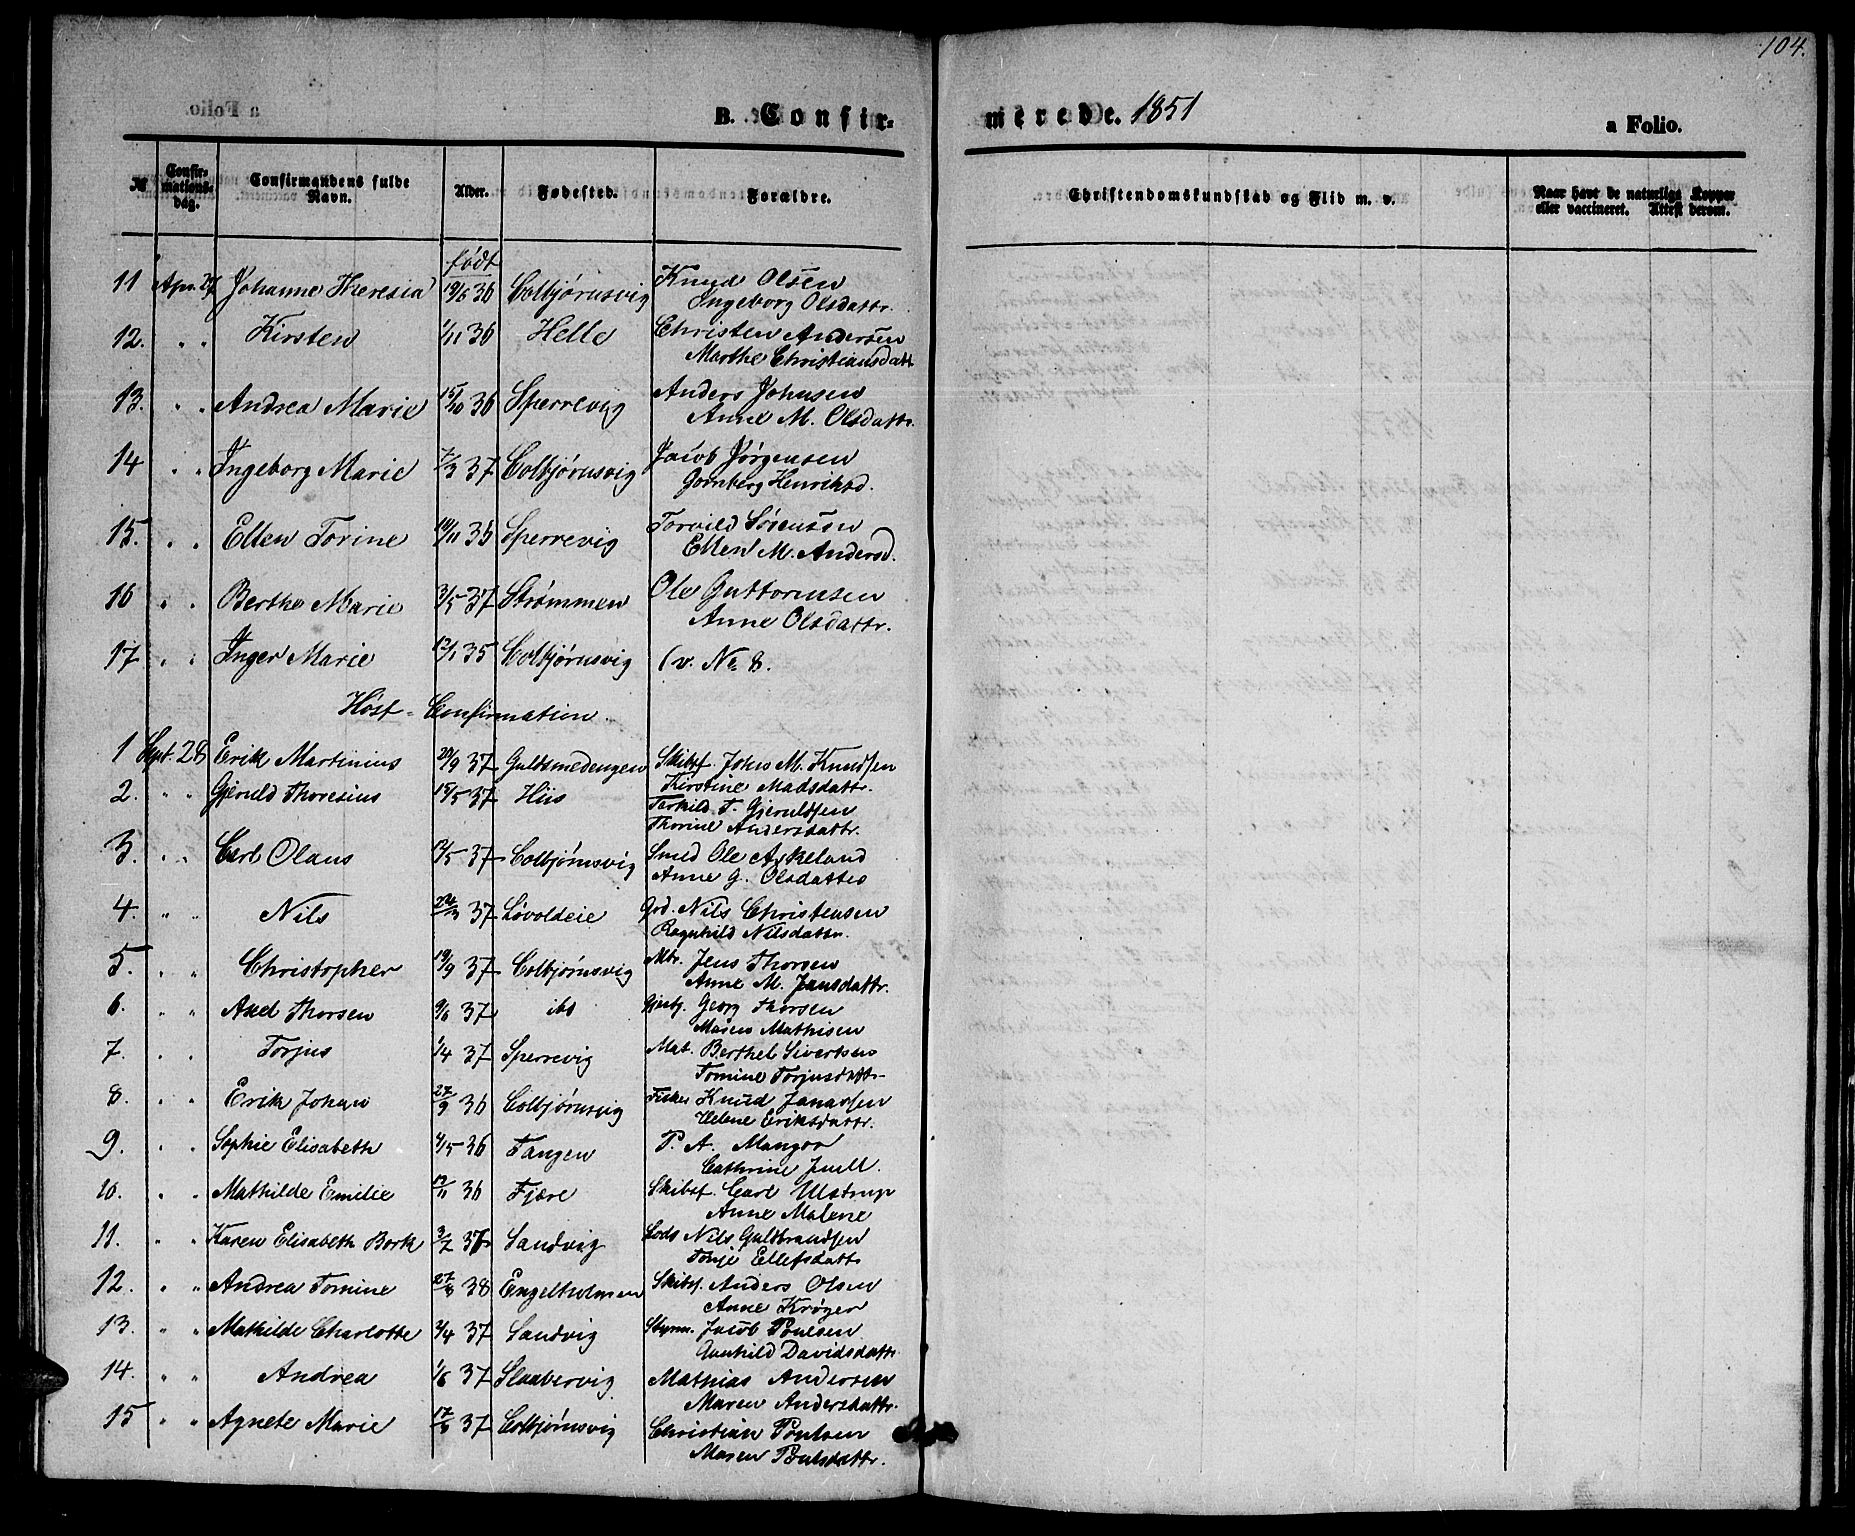 104.
B. Confir-
merede. 1851
a Folio.
№ Confir-mations-dag. Confirmandens fulde Navn. Alder. Fødested. Forældre.
Christendomskundskab og Flid m. v. Naar havt de naturlige Kopper eller vaccineret. Attest derom.
født
11 Apr. 27 Johanne Theresia 19/6 36 Colbjørnsvig Knud Olsen
Ingeborg Olsdattr.
12. " " Kirsten 1/11 36 Helle Christen Andersen
Marthe Christiansdatt
13. " " Andrea Marie 15/10 36 Sperrevig Anders Johnsen
Anne M. Olsdattr.
14 " " Ingeborg Marie 7/3 37 Colbjørnsvig Jacob Jørgensen
Gornberg Henriksd.
15. " " Ellen Torine 10/11 35 Sperrevig Torvild Sørensen
Ellen M. Andersd.
16 " " Berthe Marie 3/5 37 Strømmen Ole Guttormsen
Anne Olsdattr.
17 " " Inger Marie 12/1 35 Colbjørnsvig (v. No 8.
Høst-Confirmation.
1 Sept. 28 Erik Martinius 20/9 37 Guldsmedengen Skibsf. Johs M. Knudsen
Kirstine Madsdattr.
2. " " Gjeruld Thoresius 15/5 37 Hiis Tarkild T. Gjeruldsen
Thorine Andersdattr.
3. " " Carl Olaus 12/5 37 Colbjørnsvig Smed Ole Askeland
Anne G. Olsdatter
4. " " Nils 24/3 37 Løvoldeie Nils Christensen
Ragnhild Nilsdattr.
5. " " Christopher 19/9 37 Colbjørnsvig Mtr. Jens Thorsen
Anne M. Jensdattr.
6. " " Axel Thorsen 9/6 37 ibd Georg Thorsen
Maren Mathisen
7. " " Torjus 1/4 37 Sperrevig Mat. Berthel Sivertsen
Tomine Torjusdattr
8. " " Erik Johan 27/9 36 Colbjørnsvig Fisker Knud Janassen
Helene Eriksdattr.
9. " " Sophie Elisabeth 4/5 36 Tangen P. A. Mangor
Cathrine Juell.
10. " " Mathilde Emilie 12/11 36 Fjære Skibsf. Carl Ulstrup
Anne Malene
11. " " Karen Elisabeth Bork 3/2 37 Sandvig Lods Nils Guldbrandsen
Tonje Ellefsdattr
12. " " Andrea Tomine 27/8 38 Engelholmen Skibsf. Anders Olsen
Anne Krøger
13. " " Mathilde Charlotte 4/4 37 Sandvig Styrm. Jacob Poulsen
Gunhild Davidsdattr
14. " " Andrea 1/6 37 Slaabervig Mathias Andersen
Maren Andersdattr.
15 " " Agnete Marie 17/6 37 Colbjørnsvig Christian Poulsen
Maren Poulsdattr.